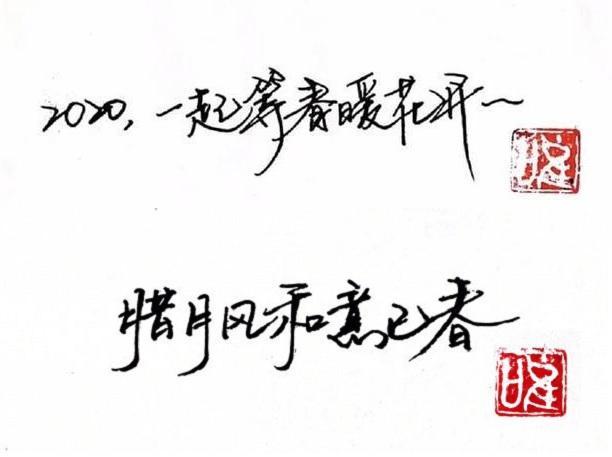 2020,一起等春暖花开~
腊月风和意已春